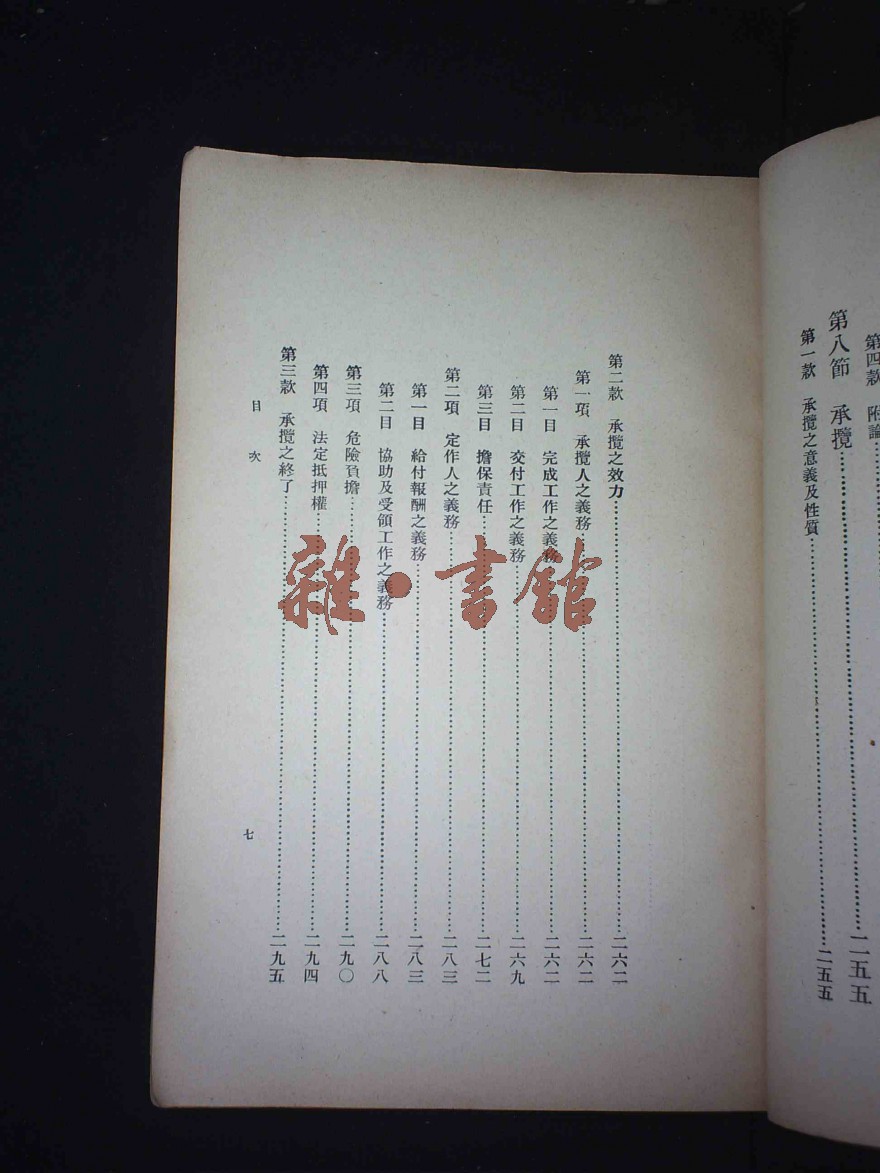 第四款 附論
第八節 承攬 二五五
第一款 承攬之意義及性質 二五五
第二款 承攬之效力 二六二
第一項 承攬人之義務 二六二
第一目 完成工作之義務 二六二
第二目 交付工作之義務 二六九
第三目 擔保責任 二七二
第二項 定作人之義務 二八三
第一目 給付報酬之義務 二八三
第二目 協助及受領工作之義務 二八八
第三項 危險負擔 二九〇
第四項 法定抵押權 二九四
第三款 承攬之終了 二九五
目次
七
雜·書館